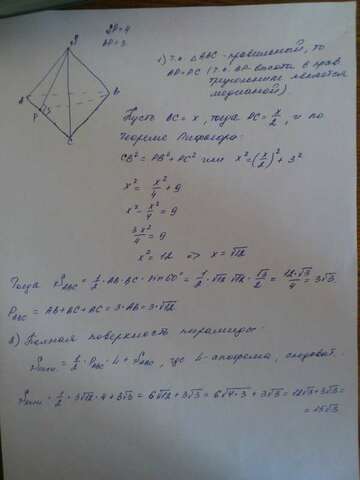 DP=4
BP=3
D
A
B
P
C
1) т.к. △ABC - правильный, то
AP=PC (т.к. BP высота в прав.
треугольнике является
медианой).
Пусть BC = x, тогда PC = x/2, и по
теореме Пифагора:
CB² = PB² + PC² или x² = (x/2)² + 3²
x² = x²/4 + 9
x² - x²/4 = 9
3x²/4 = 9
x² = 12 => x = √12
Тогда S ABC = 1/2 · AB · BC · sin 60° = 1/2 · √12 · √12 · √3/2 = 12·√3/4 = 3√3
P ABC = AB + BC + AC = 3 · AB = 3·√12
2) Полная поверхность пирамиды:
= 1/2 · P ABC · L + S ABC, где L - апофема, следоват.
= 1/2 · 3√12 · 4 + 3√3 = 6√12 + 3√3 = 6√4·3 + 3√3 = 12√3 + 3√3 =
= 15√3